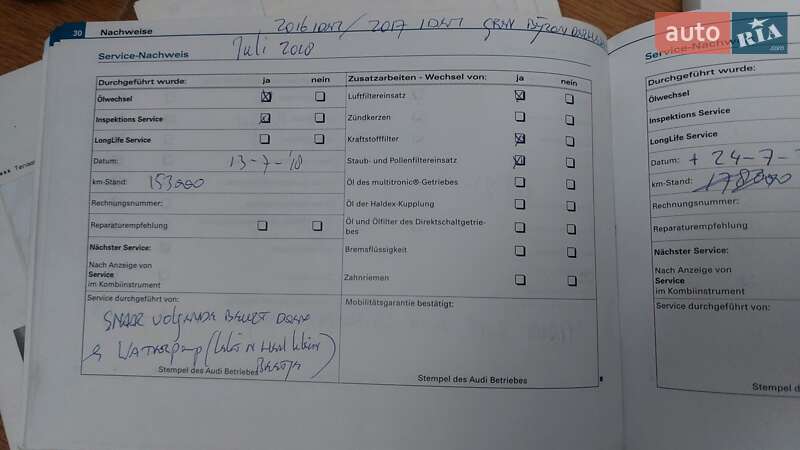 30 Nachweise
2016 / 2017
Service-Nachweis
Juli 2018
Durchgeführt wurde: ja nein
Ölwechsel
Inspektions Service
LongLife Service
Datum: 13-7-'18
km-Stand: 153000
Rechnungsnummer:
Reparaturempfehlung
Nächster Service:
Nach Anzeige von
Service
im Kombiinstrument
Service durchgeführt von:
SNAAR VOLGENDE BEURT DOEN
& WATERPOMP
Stempel des Audi Betriebes
Zusatzarbeiten - Wechsel von: ja nein
Luftfiltereinsatz
Zündkerzen
Kraftstofffilter
Staub- und Pollenfiltereinsatz
Öl des multitronic®-Getriebes
Öl der Haldex-Kupplung
Öl und Ölfilter des Direktschaltgetrie-
bes
Bremsflüssigkeit
Zahnriemen
Mobilitätsgarantie bestätigt:
Stempel des Audi Betriebes
auto RIA .com
Service-Nachw
Durchgeführt wurde:
Ölwechsel
Inspektions Service
LongLife Service
Datum: + 24-7-
km-Stand: 178000
Rechnungsnummer:
Reparaturempfehlung
Nächster Service:
Nach Anzeige von
Service
im Kombiinstrument
Service durchgeführt von:
Stempel des Au